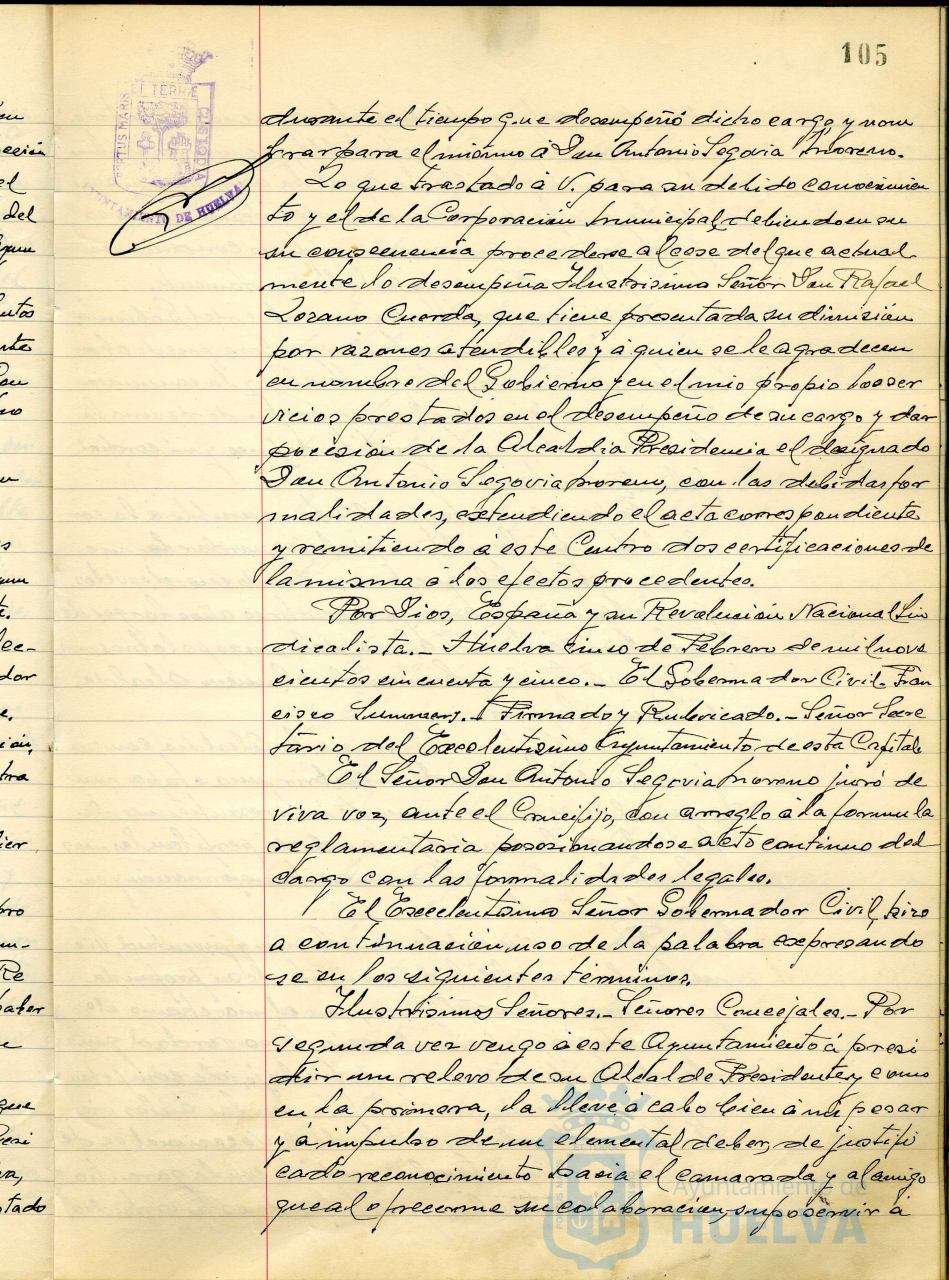 105
PORTUS MARIS ET TERRÆ CUSTODIA
AYUNTAMIENTO DE HUELVA
durante el tiempo que desempeñó dicho cargo, y nom
brar para el mismo á Don Antonio Segovia Moreno.
Lo que traslado á V. para su debido conocimien
to y el de la Corporación Municipal, debiendo en su
su consecuencia procederse al cese del que actual
mente lo desempeña Ilustrisimo Señor Don Rafael
Lozano Cuerda, que tiene presentada su dimisión
por razones atendibles y á quien se le agradecen
en nombre del Gobierno y en el mio propio los ser
vicios prestados en el desempeño de su cargo y dar
posesión de la Alcaldia Presidencia el designado
Don Antonio Segovia Moreno, con las debidas for
malidades, extendiendo el acta correspondiente
y remitiendo á este Centro dos certificaciones de
la misma á los efectos procedentes.
Por Dios, España y su Revolución Nacional Sin
dicalista.- Huelva cinco de Febrero de mil nove
cientos cincuenta y cinco.- El Gobernador Civil- Fran
cisco Summers.- Firmado y Rubricado.- Señor Secre
tario del Excelentisimo Ayuntamiento de esta Capital.
El Señor Don Antonio Segovia Moreno juró de
viva voz, ante el Crucifijo, con arreglo á la formula
reglamentaria posesionandose acto continuo del
cargo con las formalidades legales.
El Excelentisimo Señor Gobernador Civil, hizo
a continuación uso de la palabra expresando
se en los siguientes términos.
Ilustrisimos Señores.- Señores Concejales.- Por
segunda vez vengo á este Ayuntamiento á presi
dir un relevo de su Alcalde Presidente y como
en la primera, la llevé á cabo bien á mi pesar
y á impulso de un elemental deber, de justifi
cado reconocimiento hacia el camarada y al amigo
que al ofrecerme su colaboracion, supo servir á
Ayuntamiento de
HUELVA